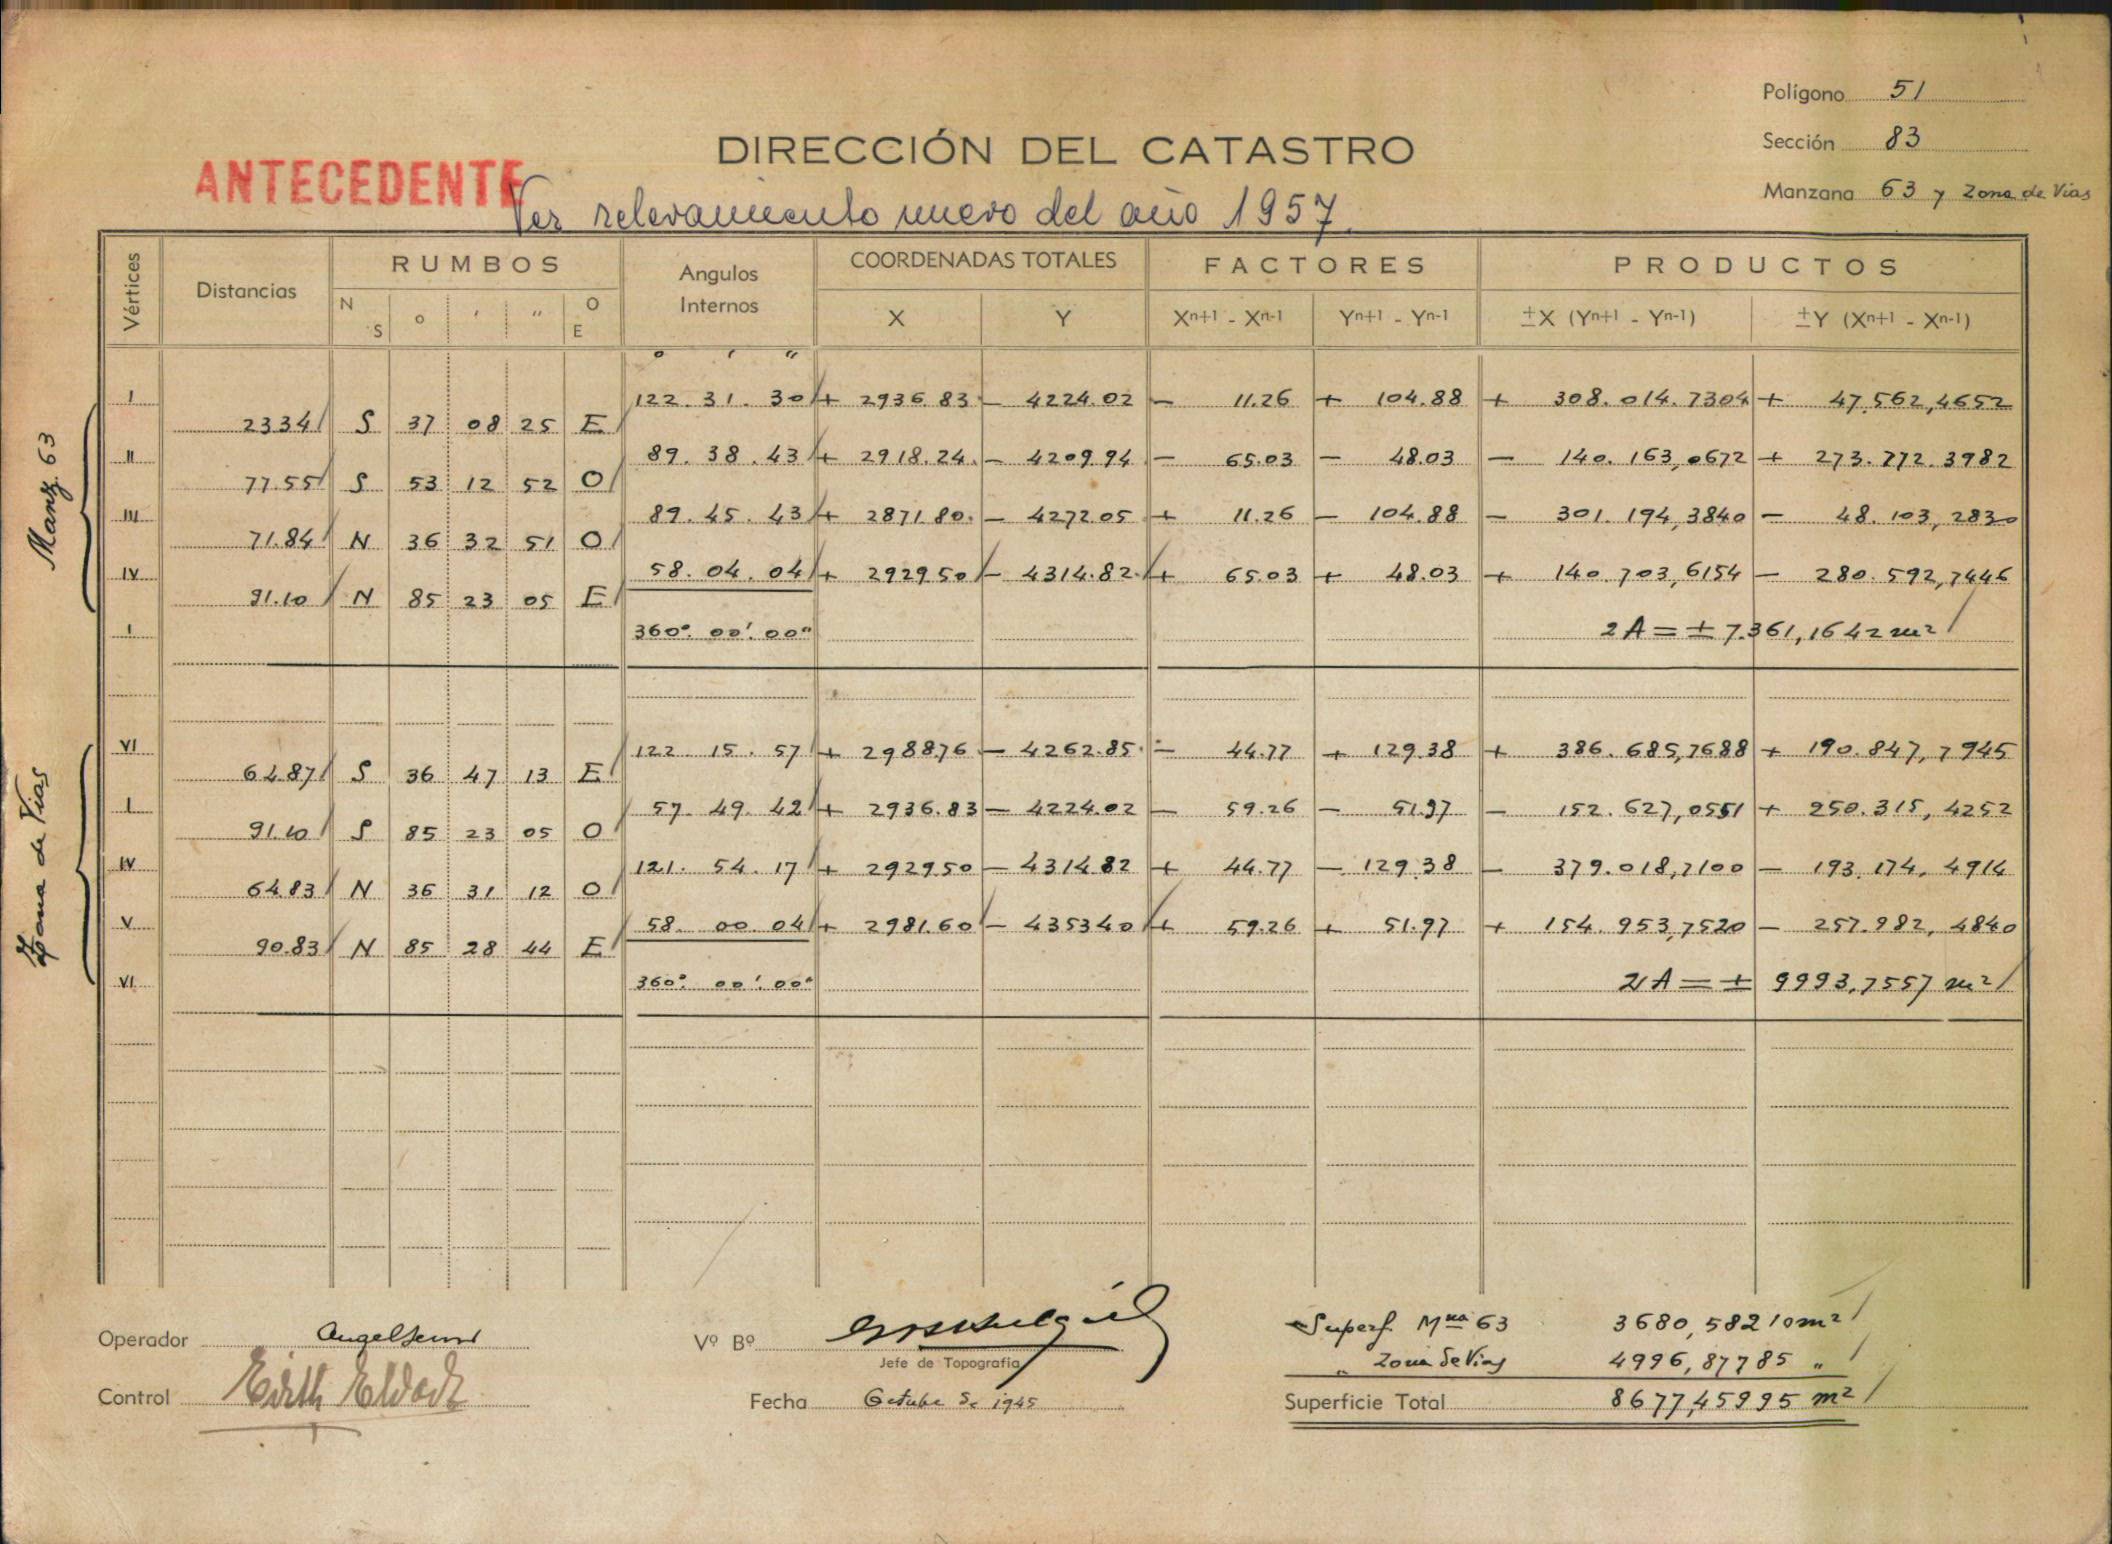 Polígono 51
Sección 83
Manzana 63 y Zona de Vias
DIRECCIÓN DEL CATASTRO
ANTECEDENTE
Ver relevamiento nuevo del año 1957.
Vértices Distancias RUMBOS Angulos Internos COORDENADAS TOTALES FACTORES PRODUCTOS
N S o ' " O E X Y Xn+1 - Xn-1 Yn+1 - Yn-1 ±X (Yn+1 - Yn-1) ±Y (Xn+1 - Xn-1)
o ' "
Manz. 63
I 122. 31. 30 + 2936.83 - 4224.02 - 11.26 + 104.88 + 308.014.7304 + 47.562,4652
23.34 S 37 08 25 E
II 89. 38. 43 + 2918.24 - 4209.94 - 65.03 - 48.03 - 140.163,0672 + 273.772.3982
77.55 S 53 12 52 O
III 89. 45. 43 + 2871.80 - 4272.05 + 11.26 - 104.88 - 301.194,3840 - 48.103,2830
71.84 N 36 32 51 O
IV 58. 04. 04 + 2929.50 - 4314.82 + 65.03 + 48.03 + 140.703,6154 - 280.592,7446
91.10 N 85 23 05 E
I 360°. 00'. 00" 2A = ± 7.361,1642 m²
Zona de Vias
VI 122 15. 57 + 2988.76 - 4262.85 - 44.77 + 129.38 + 386.685,7688 + 190.847,7945
64.87 S 36 47 13 E
I 57. 49. 42 + 2936.83 - 4224.02 - 59.26 - 51.97 - 152.627,0551 + 250.315,4252
91.10 S 85 23 05 O
IV 121. 54. 17 + 2929.50 - 4314.82 + 44.77 - 129.38 - 379.018,7100 - 193.174,4914
64.83 N 36 31 12 O
V 58. 00 04 + 2981.60 - 4353.40 + 59.26 + 51.97 + 154.953,7520 - 257.982,4840
90.83 N 85 28 44 E
VI 360°. 00'. 00" 2A = ± 9993,7557 m²
Superf. Mna 63 3680,58210 m²
" Zona de Vias 4996,87785 "
Superficie Total 8677,45995 m²
Operador
Control
Vº Bº
Jefe de Topografía
Fecha Octubre de 1945